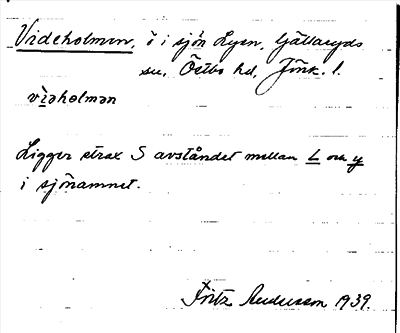 Videholmen, ö i sjön Lyen, Gällaryds
sn, Östbo hd, Jönk. l.
viəholmən
Ligger strax S avståndet mellan L och y
i sjönamnet.
Fritz Andersson 1939.